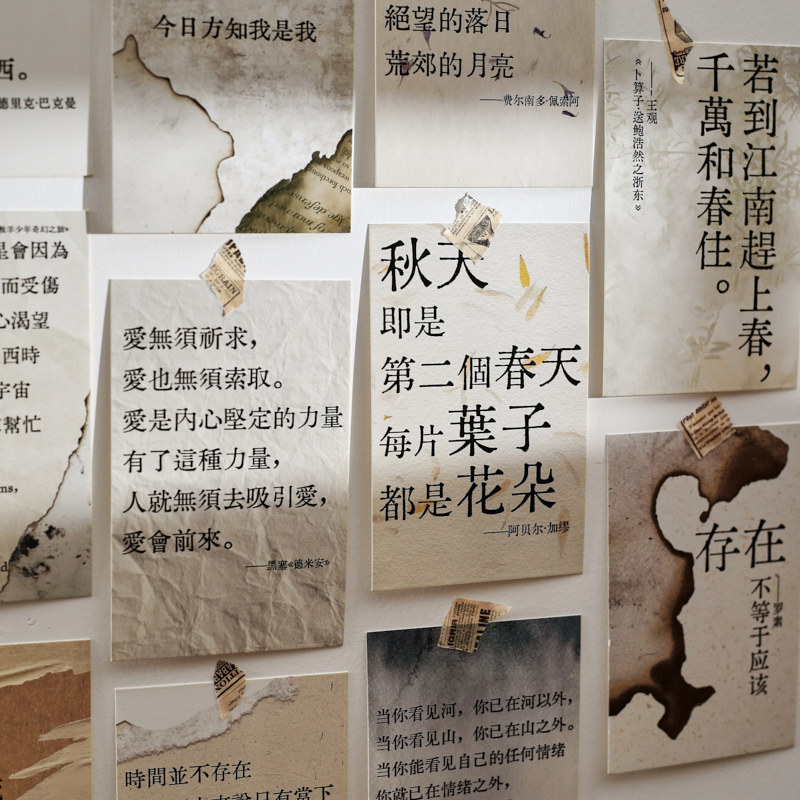 西。
德里克·巴克曼
今日方知我是我
絕望的落日
荒郊的月亮
——费尔南多·佩索阿
若到江南趕上春，
千萬和春住。
——王观
《卜算子·送鲍浩然之浙东》
牧羊少年奇幻之旅》
是會因為
而受傷
心渴望
西時
宇宙
幫忙
ms,
愛無須祈求，
愛也無須索取。
愛是內心堅定的力量
有了這種力量，
人就無須去吸引愛，
愛會前來。
——黑塞《德米安》
秋天
即是
第二個春天
每片葉子
都是花朵
——阿贝尔·加缪
存在
不等于应该
——罗素
時間並不存在
只有當下
当你看见河，你已在河以外，
当你看见山，你已在山之外。
当你能看见自己的任何情绪
你就已在情绪之外，